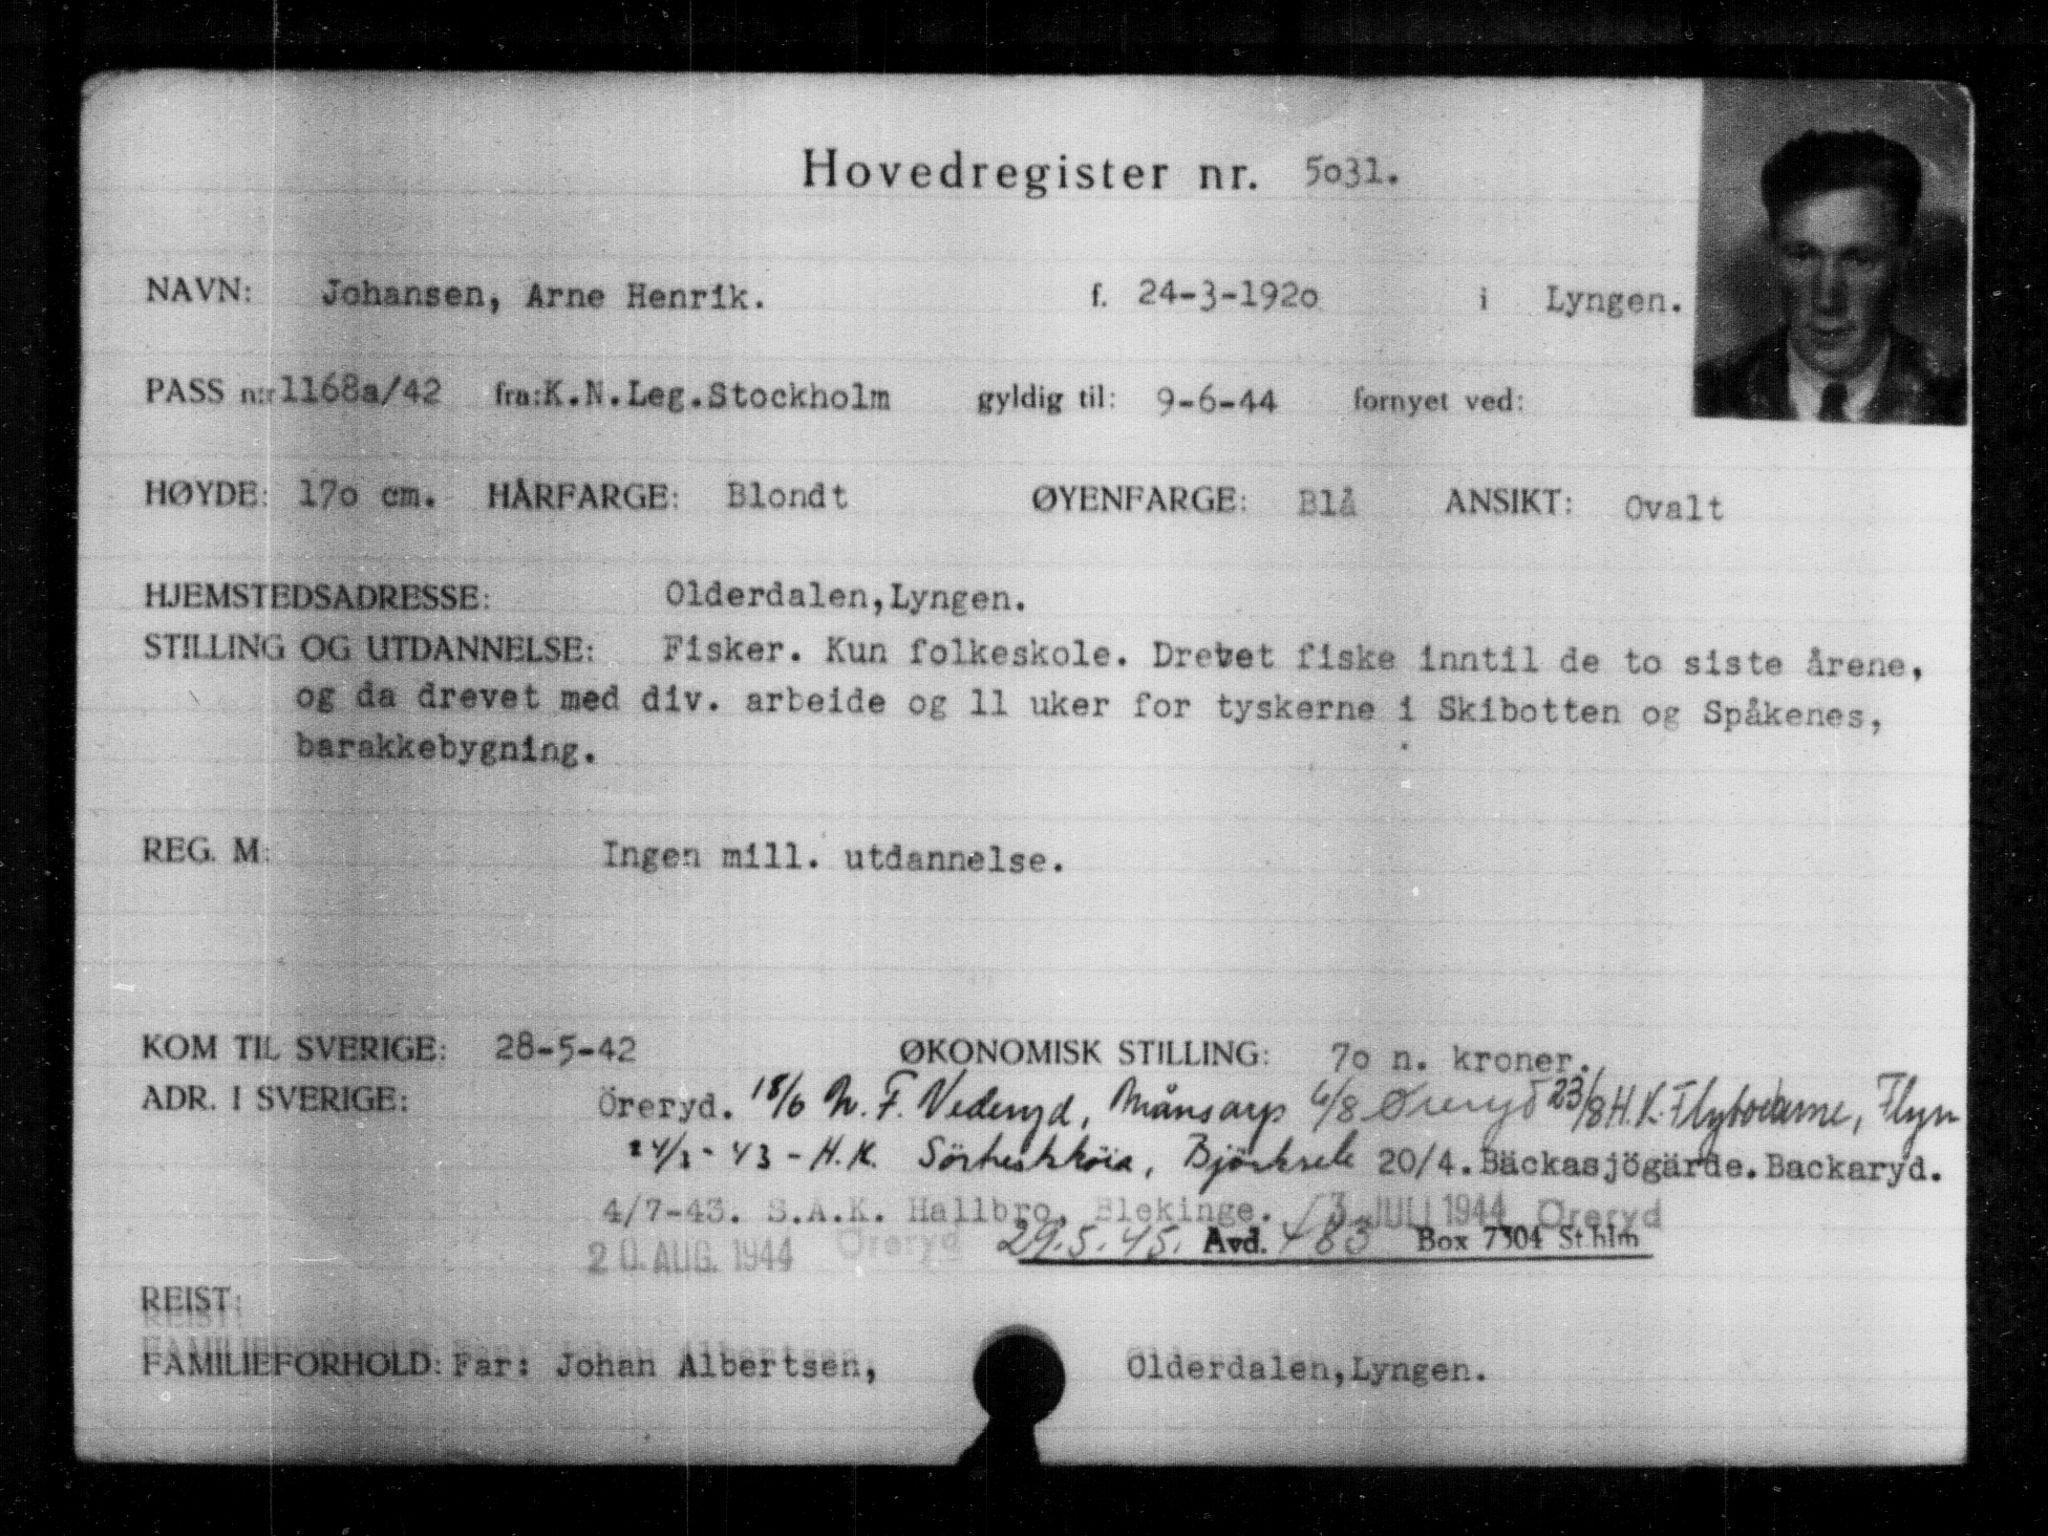 Hovedregister nr. 5031.
NAVN: Johansen, Arne Henrik. f. 24-3-1920 i Lyngen.
PASS n:r 1168a/42 fra: K.N.Leg.Stockholm gyldig til: 9-6-44 fornyet ved:
HØYDE: 170 cm. HÅRFARGE: Blondt ØYENFARGE: Blå ANSIKT: Ovalt
HJEMSTEDSADRESSE: Olderdalen,Lyngen.
STILLING OG UTDANNELSE: Fisker. Kun folkeskole. Drevet fiske inntil de to siste årene,
og da drevet med div. arbeide og 11 uker for tyskerne i Skibotten og Spåkenes,
barakkebygning.
REG. M: Ingen mill. utdannelse.
KOM TIL SVERIGE: 28-5-42 ØKONOMISK STILLING: 70 n. kroner.
ADR. I SVERIGE: Öreryd. 18/6 N. F. Vederyd, Månsarp 6/8 Øreryd 23/8 H.K. Flybodarne, Flyn
- 43 - H.K. Björksele 20/4. Bäckasjögärde. Backaryd.
4/7-43. S.A.K. Hallbro, Blekinge. 13 JULI 1944 Öreryd
20. AUG. 1944 Öreryd 29.5.45. Avd. 483 Box 7304 Sthlm
REIST:
FAMILIEFORHOLD: Far: Johan Albertsen, Olderdalen,Lyngen.